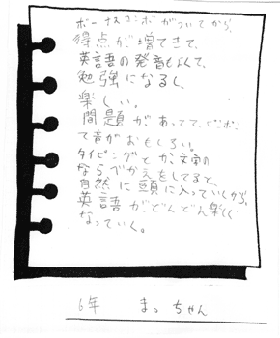 ボーナスコンボがついてから、
得点が増てきて、
英語の発音もよくて、
勉強になるし、
楽しい。
問題があってて、ピンポン
て音がおもしろい。
タイピングとか文字の
ならべかえをしてると、
自然に頭に入っていくから、
英語がどんどん楽しく
なっていく。
6年 まっちゃん